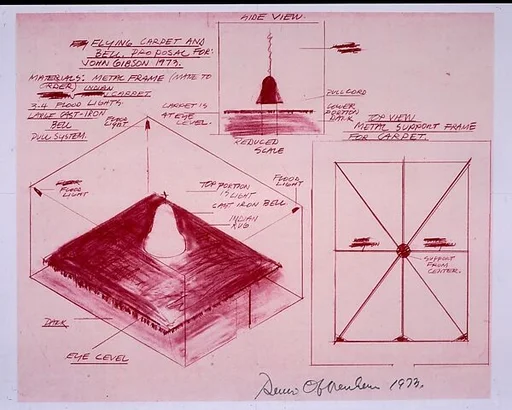 FLYING CARPET AND
BELL. PROPOSAL FOR:
JOHN GIBSON 1973.
MATERIALS: METAL FRAME (MADE TO
ORDER) INDIAN
CARPET.
3-4 FLOOD LIGHTS.
LARGE CAST-IRON
BELL
PULL SYSTEM.
SIDE VIEW.
PULL CORD
LOWER
PORTION
DARK
CARPET IS
AT EYE
LEVEL.
REDUCED
SCALE
TOP VIEW
METAL SUPPORT FRAME
FOR CARPET.
SUPPORT
FROM
CENTER.
FLOOD
LIGHT
FLOOD
LIGHT
FLOOD
LIGHT
TOP PORTION
IS LIGHT
CAST IRON BELL
INDIAN
RUG
DARK
EYE LEVEL
Dennis Oppenheim 1973.